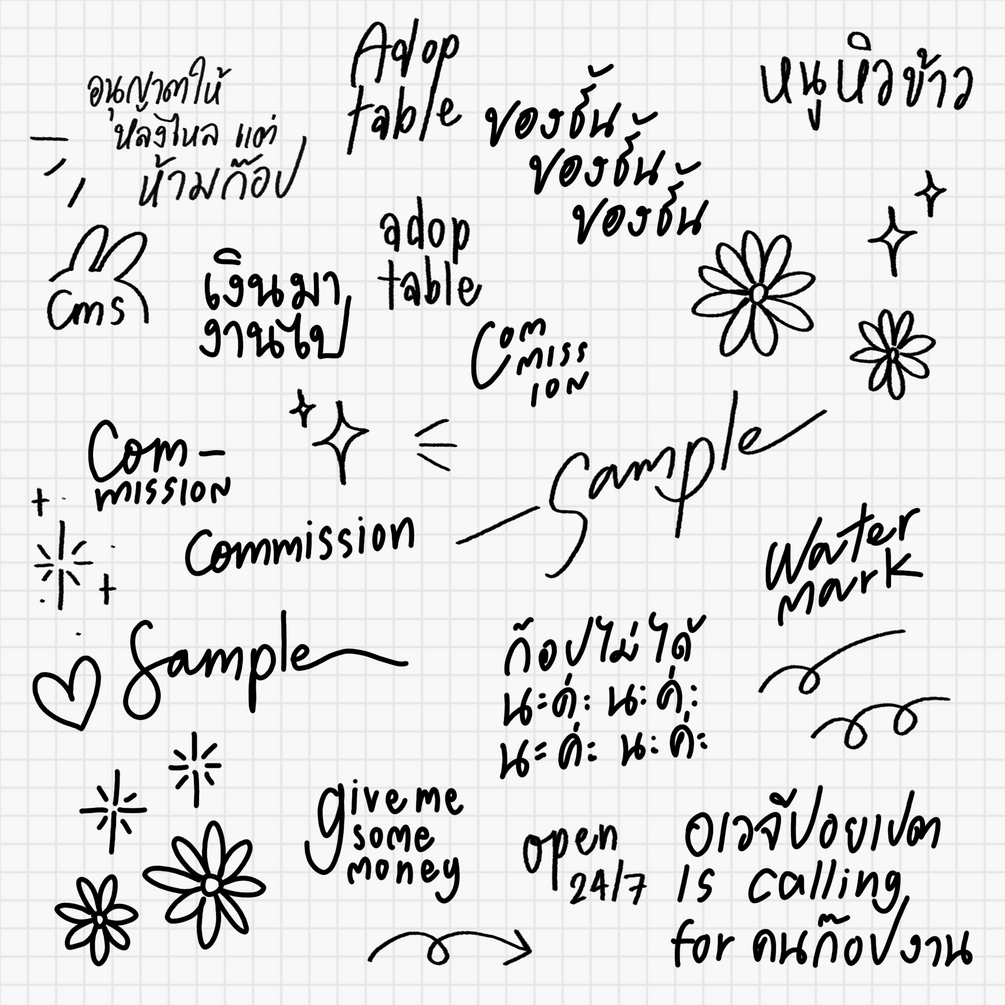 อนุญาตให้
หลงไหล แต่
ห้ามก๊อป
Adop
table
ของชั้น
ของชั้น
ของชั้น
หนูหิวข้าว
cms
เงินมา
งานไป
adop
table
Com
miss
ion
Com-
mission
Commission
Sample
Water
mark
Sample
ก๊อปไม่ได้
นะค่ะ นะค่ะ
นะค่ะ นะค่ะ
give me
some
money
open
24/7
อเวจีปอยเปต
is calling
for คนก๊อปงาน